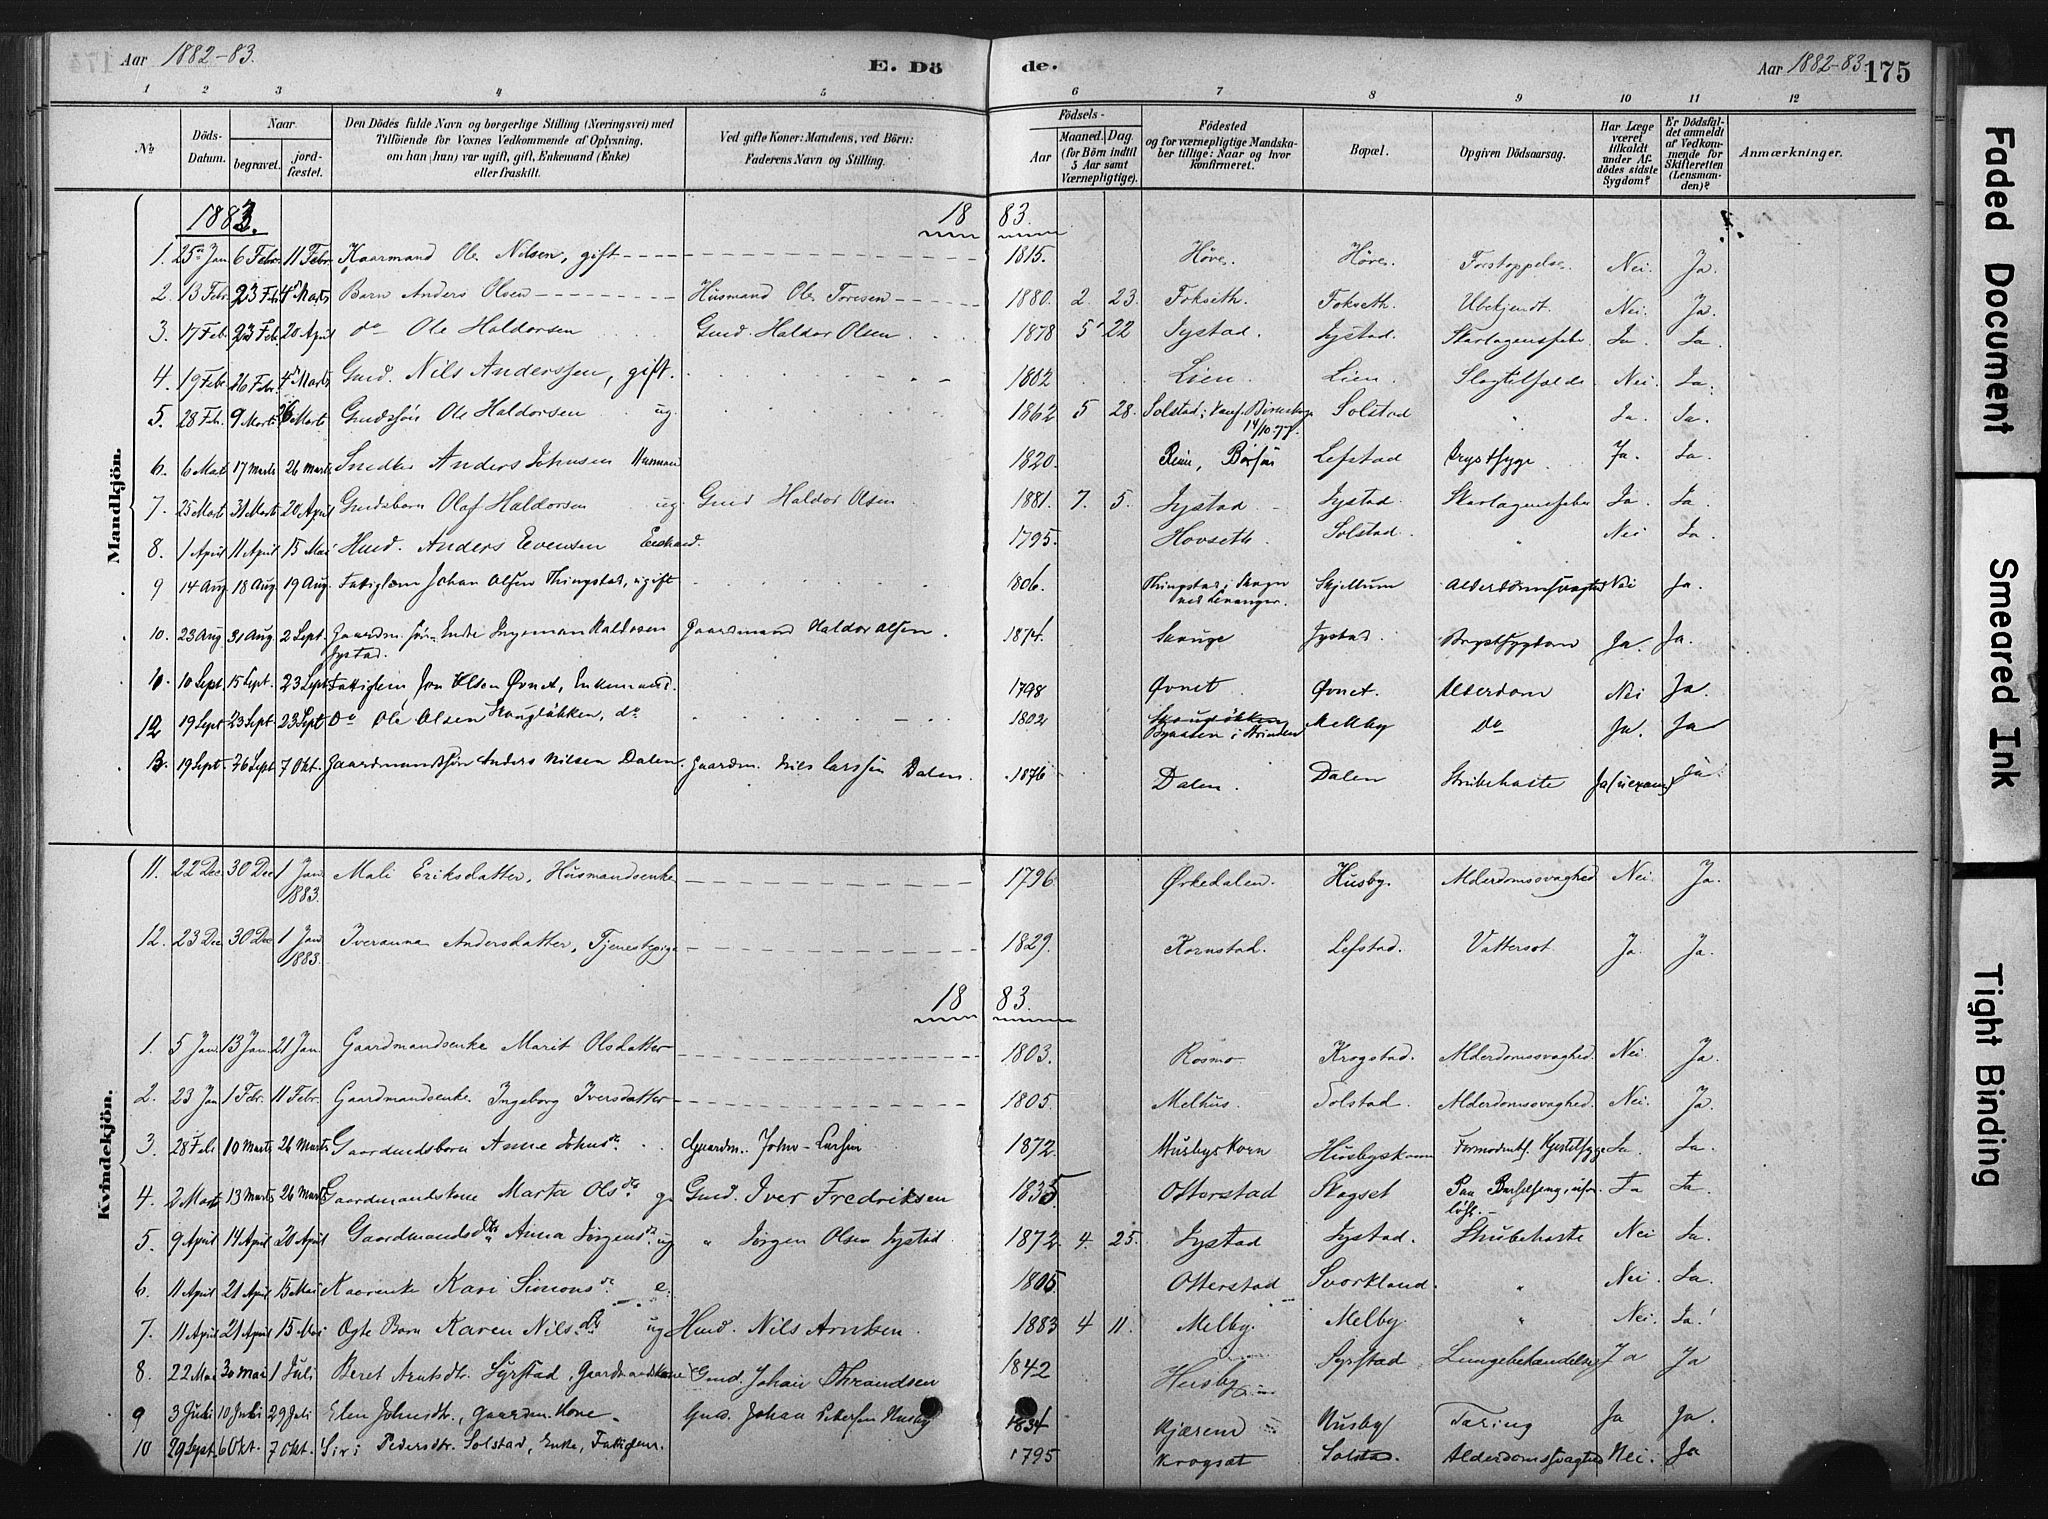 Aar 1882-83.
E. Dö
de.
Aar 1882-83.
175
1 2 3 4 5 6 7 8 9 10 11 12
No
Döds-Datum.
Naar
begravet.
jordfæstet.
Den Dödes fulde Navn og borgerlige Stilling (Næringsvei) med
Tilföiende for Voxnes Vedkommende af Oplysning,
om han (hun) var ugift, gift, Enkemand (Enke)
eller fraskilt.
Ved gifte Koner: Mandens, ved Börn:
Faderens Navn og Stilling.
Födsels-
Aar
Maaned. Dag.
(for Börn indtil
5 Aar samt
Værnepligtige).
Födested
og for værnepligtige Mandska-
ber tillige: Naar og hvor
konfirmeret.
Bopæl.
Opgiven Dödsaarsag.
Har Læge
været
tilkaldt
under Af-
dödes sidste
Sygdom?
Er Dödsfal-
det anmeldt
af Vedkom-
mende for
Skifteretten
(Lensman-
den)?
Anmærkninger.
Mandkjön.
1883.
18 83.
1. 25 Jan 6 Febr. 11 Febr. Kaarmand Ole Nilsen, gift 1815. Höve. Höve. Forstoppelse. Nei. Ja.
2. 13 Febr. 23 Feb 4 Marts Barn Anders Olsen Husmand Ole Toresen 1880. 2. 23. Fokseth. Fokseth. Ubekjendt. Nei. Ja.
3. 17 Feb 23 Feb. 20 April do Ole Haldorsen Gmd. Haldor Olsen 1878 5 22 Systad. Systad. Skarlagensfeber Ja. Ja.
4. 19 Feb 26 Febr. 4 Marts Gmd. Nils Anderssen, gift. 1802 Lien. Lien. Slagtilfælde Nei Ja.
5. 28 Feb. 9 Marts 26 Marts Gmdssön Ole Haldorsen ug. 1862 5 28. Solstad; Solstad " Ja. Ja.
14/10.77.
6. 6 Mart 17 Marts 26 Marts Snedker Anders Johnsen 1820. Börsen Lefstad Brystsyge. Ja. Ja.
7. 25 Marts 31 Marts 20 April Gmdsbarn Olaf Haldorsen ug Gmd Haldor Olsen 1881. 7. 5. Systad Systad. Skarlagensfeber Ja Ja
8. 1 April 11 April 15 Mai Hmd. Anders Evensen Enkemd. 1795. Hovseth Solstad. " Nei Ja.
9 14 Aug. 18 Aug. 19 Aug. Fattiglem Johan Olsen Thingstad, ugift 1806. Thingstad i Skogn Skjellum Alderdomssvaghed Nei Ja.
ved Levanger.
10. 23 Aug. 31 Aug. 2 Sept. Gaardm. sön Endre Ingeman Haldorsen Gaardmand Haldor Olsen. 1874. Skauge Systad. Brystsygdom Ja. Ja.
Systad.
10 Sept. 15 Sept. 23 Sept. Fattiglem Jon Olsen Övnet, Enkemand. 1798 Övnet. Övnet. Alderdom Nei Ja.
12 19 Sept 23 Sept 23 Sept Do Ole Olsen Skauglökken, do 1802 Skauglökken Melby Do Ja. Ja
Byaasen i Strinden
13. 19 Sept 26 Sept 7 Okt. Gaardmandssön Anders Nilsen Dalen. Gaardm. Nils Larssen Dalen. 1876 Dalen. Dalen Strubehoste Ja
Kvindekjön.
11. 22 Dec 30 Dec 1 Jan 1883. Mali Eriksdatter, Husmandsenke 1796 Örkedalen. Husby. Alderdomssvaghed Nei. Ja.
12. 23 Dec 30 Dec 1 Jan 1883. Iveranna Andersdatter, Tjenestepige 1829. Kornstad. Lefstad. Vattersot. Ja. Ja.
18 83.
1. 5 Jan. 13 Jan. 21 Jan. Gaardmandsenke Marit Olsdatter 1803. Rosmo. Krogstad. Alderdomssvaghed. Nei. Ja.
2. 23 Jan 1 Febr. 11 Febr. Gaardmandsenke Ingeborg Iversdatter 1805. Melhus. Solstad. Alderdomssvaghed. Nei. Ja.
3. 28 Feb 10 Marts 26 Marts Gaardmdsbarn Anne Johnsdr. Gaardm. John Larsen 1872. Husbyskorn Husbyskorn Formodentl. Kjertelsyge Ja. Ja.
4. 2 Marts 13 Marts 26 Marts Gaardmandskone Marta Olsdr g. Gmd. Iver Fredriksen 1835 Otterstad Skogset Paa Barselseng, Ja Ja.
5. 9 April 14 April 20 April Gaardmandsdtr Anna Jörgensdr ug " Jörgen Olsen Systad. 1872. 4. 25. Systad Systad. Strubehoste Nei Ja.
6. 11 April 21 April 15 Mai Kaarenke Kari Simonsdr e. 1805 Otterstad Svorkland. " Nei. Ja.
7. 11 April 21 April 15 Mai Ogte Barn Karen Nilsdr ug Hmd. Nils Arntsen. 1883 4 11. Melby. Melby. " Nei. Ja!
8 22 Mai 30 Mai 1 Juli Beret Arntsdr. Syrstad, Gaardmandskone Gmd. Johan Ohrandsen 1842 Husby Syrstad Lungebetændelse Ja Ja
9 3 Juli 10 Juli 29 Juli Elen Johnsdtr., Gaardm. Kone. Gmd. Johan Petersen Husby 1834 Kjæren Husby Tæring Ja Ja.
10 29 Sept. 6 Okt. 7 Okt. Siri Pedersdtr. Solstad, Enke, 1795 Krogsæt Solstad. Alderdomssvaghed Nei. Ja
Faded Document
Smeared Ink
Tight Binding